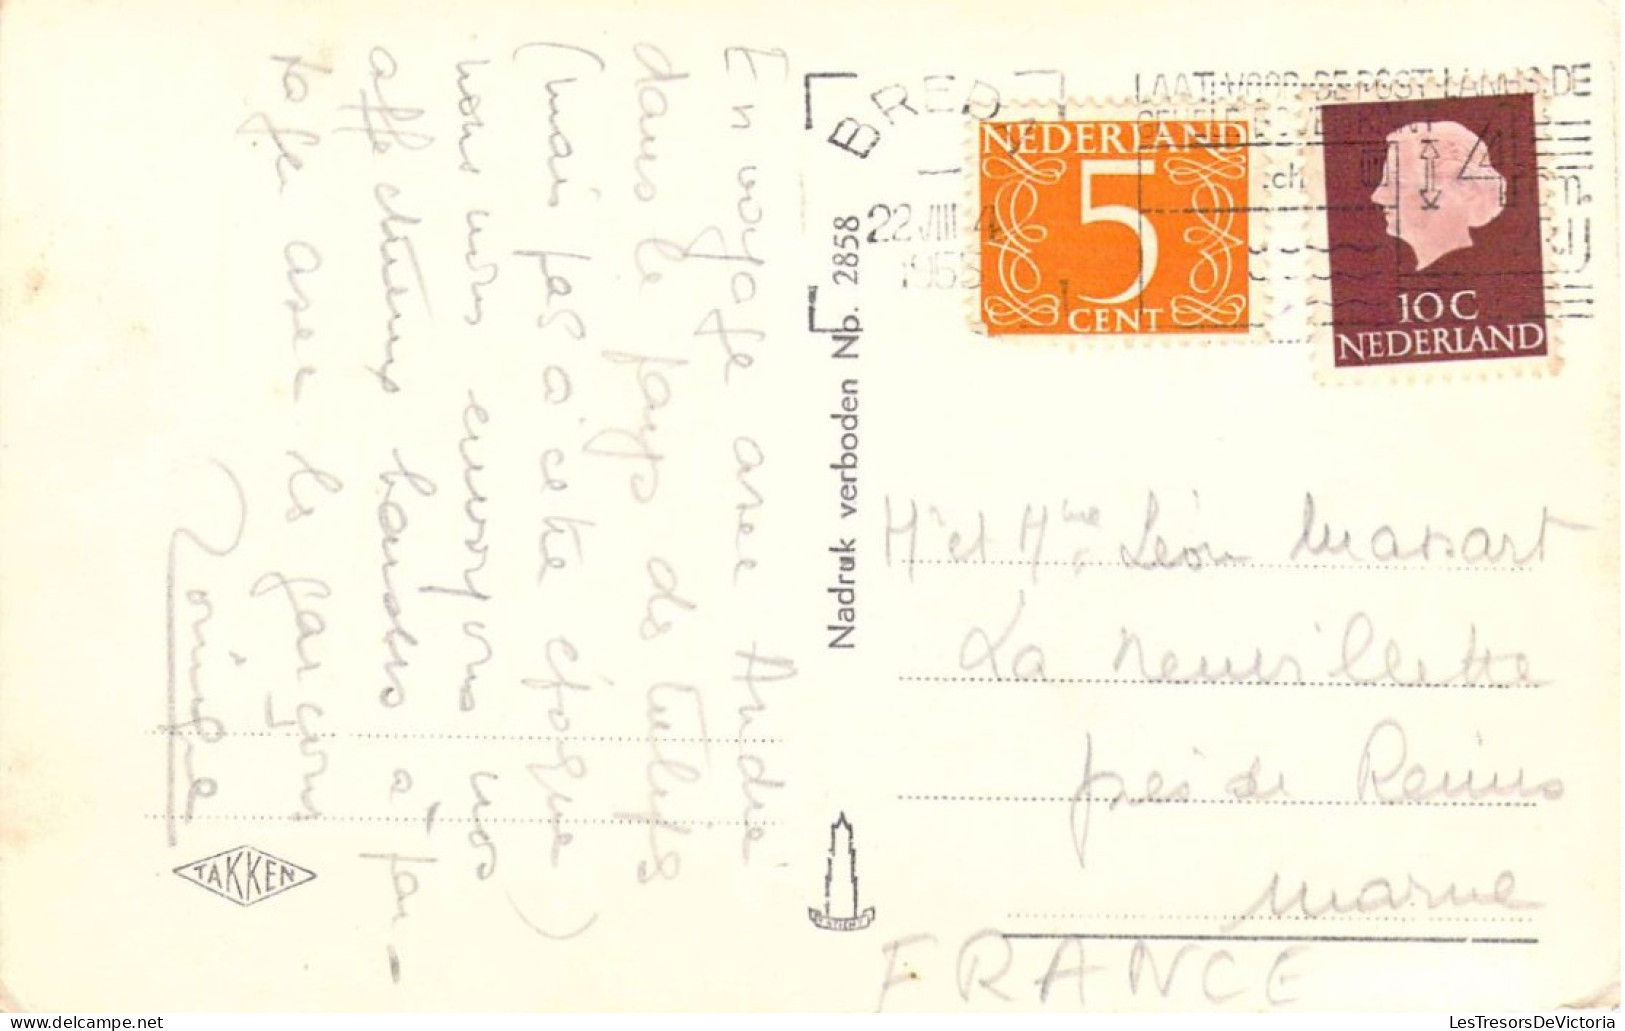 En voyage avec André
dans le pays des tulipes
(mais pas à cette époque)
nous vous envoyons nos
affectueux baisers à par-
tager avec les garçons
TAKKEN
Nadruk verboden Np. 2858
BREDA
22.VIII 4
1955
LAAT VOOR DE POST LANGS DE
NEDERLAND
5
CENT
10 C
NEDERLAND
Mr et Mme Léon Massart
La Neuvillette
près de Reims
Marne
FRANCE
LesTresorsDeVictoria